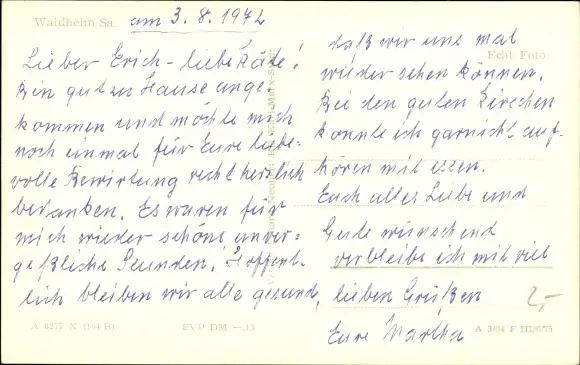 Waldheim Sa.
am 3.8.1972
Lieber Erich - liebe Käte!
Bin gut zu Hause ange-
kommen und möchte mich
noch einmal für Eure liebe-
volle Bewirtung recht herzlich
bedanken. Es waren für
mich wieder schöne, unver-
geßliche Stunden. Hoffent-
lich bleiben wir alle gesund,
A 8277 N (104 B)
EVP DM —.15
Echt Foto
daß wir uns mal
wieder sehen können.
Bei den guten Kirschen
konnte ich garnicht auf-
hören mit essen.
Euch alles Liebe und
Gute wünschend
verbleibe ich mit viel
lieben Grüßen
Eure Martha
2,-
A 3/64 F III/6/75